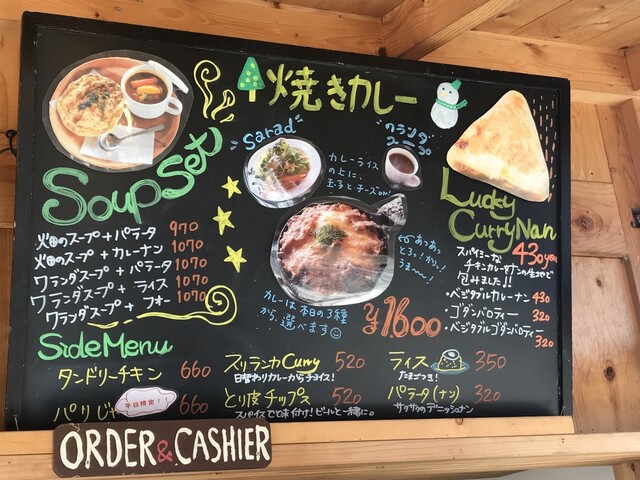 焼きカレー
"Sarad"
"ワランダスープ"
カレーライス
の上に、
玉子とチーズon!
Soup Set
火田のスープ+パラータ 970
火田のスープ+カレーナン 1070
ワランダスープ+パラータ 1070
ワランダスープ+ライス 1070
ワランダスープ+フォー 1070
カレーは本日の3種
から、選べます
¥1600
Lucky
CurryNan
430yen
スパイシーな
チキンカレーをナンの生地で
包みました!!
・ベジタブルカレーナン 430
・ゴダンバロティー 320
・ベジタブルゴダンバロティー
320
Side Menu
タンドリーチキン 660
平日限定!
660
スリランカCurry 520
日替わりカレーからチョイス!
とり皮チップス 520
スパイスで味付け!ビールと一緒に。
ライス 350
たまごつき!
パラータ(ナン) 320
サックサクのデニッシュナン
ORDER & CASHIER